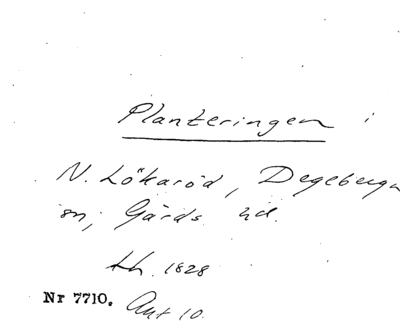 Planteringen i
N. Lökaröd, Degeberga
sn, Gärds hd.
th. 1828
Nr 7710. Aut 10.